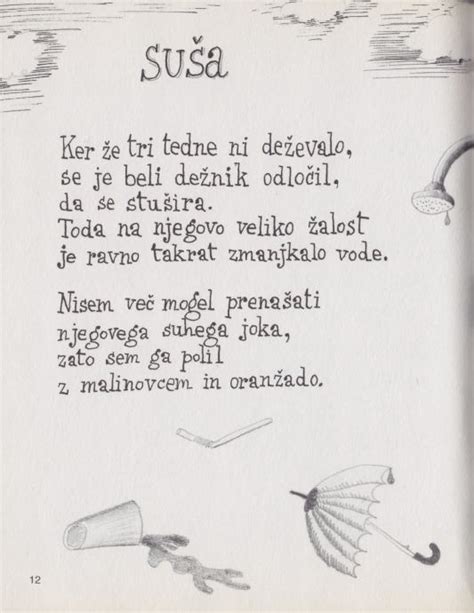 suša
Ker že tri tedne ni deževalo,
se je beli dežnik odločil,
da se stušira.
Toda na njegovo veliko žalost
je ravno takrat zmanjkalo vode.
Nisem več mogel prenašati
njegovega suhega joka,
zato sem ga polil
z malinovcem in oranžado.
12